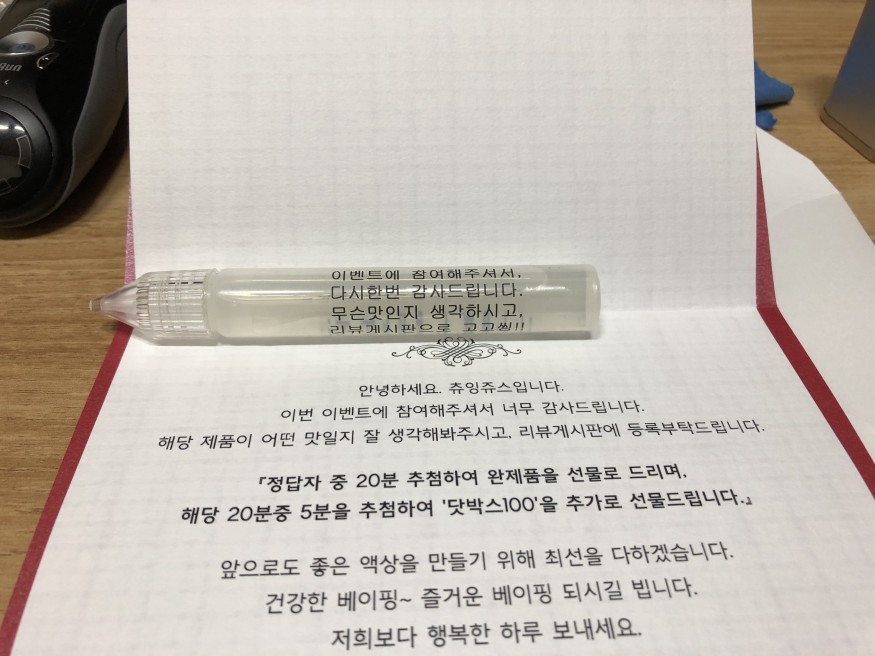 이벤트에 참여해주셔서,
다시한번 감사드립니다.
무슨맛인지 생각하시고,
리뷰게시판으로 고고씽!!
안녕하세요. 츄잉쥬스입니다.
이번 이벤트에 참여해주셔서 너무 감사드립니다.
해당 제품이 어떤 맛일지 잘 생각해봐주시고, 리뷰게시판에 등록부탁드립니다.
『정답자 중 20분 추첨하여 완제품을 선물로 드리며,
해당 20분중 5분을 추첨하여 '닷박스100'을 추가로 선물드립니다.』
앞으로도 좋은 액상을 만들기 위해 최선을 다하겠습니다.
건강한 베이핑~ 즐거운 베이핑 되시길 빕니다.
저희보다 행복한 하루 보내세요.